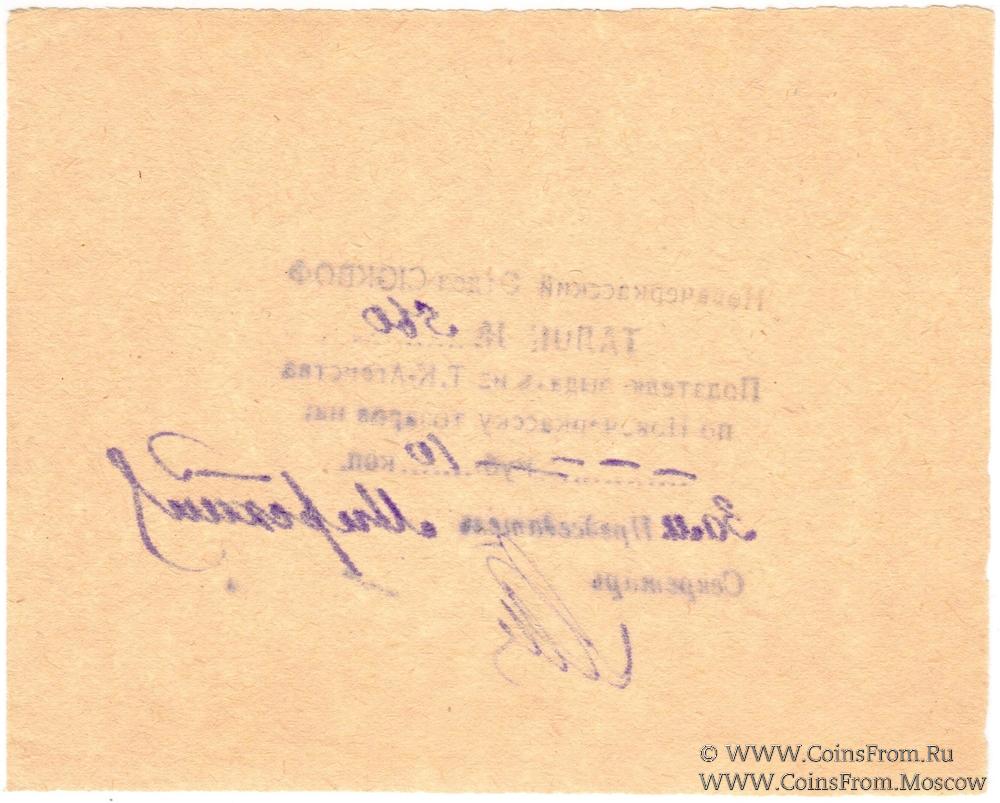 Новочеркасский Отдел СЮКВОФ
ТАЛОН № 560
Подателю выдать из Т.К.Агенства
по Новочеркасску товаров на:
руб. 10 коп.
Зам Председатель
Секретарь
© WWW.CoinsFrom.Ru
WWW.CoinsFrom.Moscow